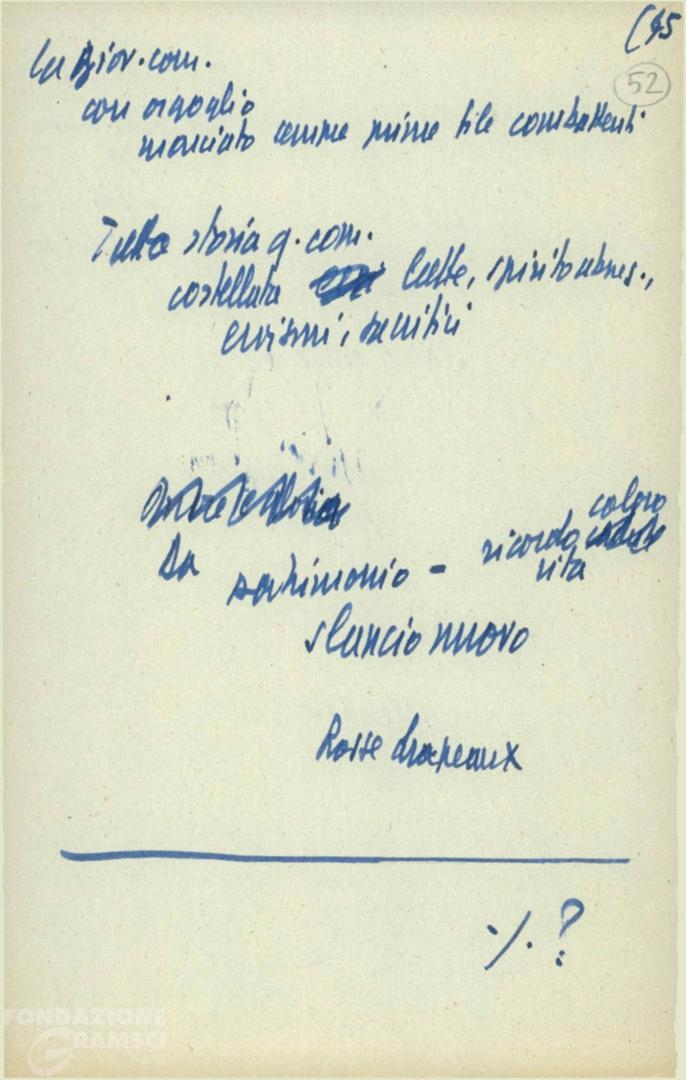 (45
52
La gior. com.
con orgoglio
marciato sempre prime file combattenti
Tutta storia g. com.
costellata lotte, spirito abneg.,
eroismi, sacrifici
Da patrimonio - ricordo coloro
vita
slancio nuovo
Rosse drapeaux
./. ?
FONDAZIONE
GRAMSCI